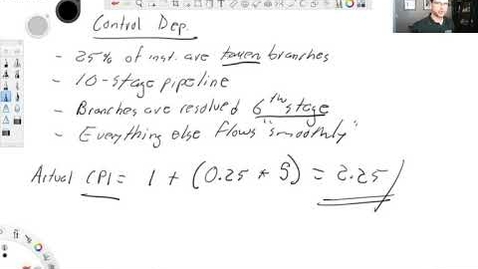 Control Dep.
- 25% of inst. are taken branches
- 10-stage pipeline
- Branches are resolved 6th stage
- Everything else flows "smoothly"
Actual CPI = 1 + (0.25 * 5) = 2.25